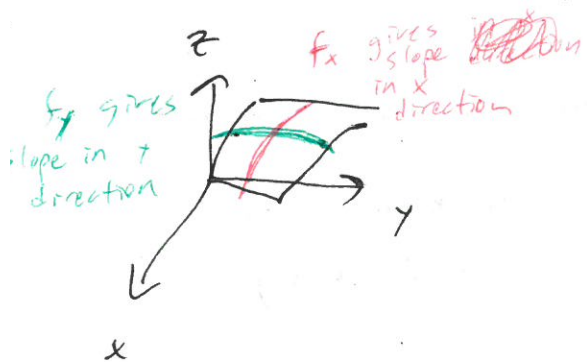 Z
fx gives
slope
in x
direction
fy gives
slope in y
direction
Y
X